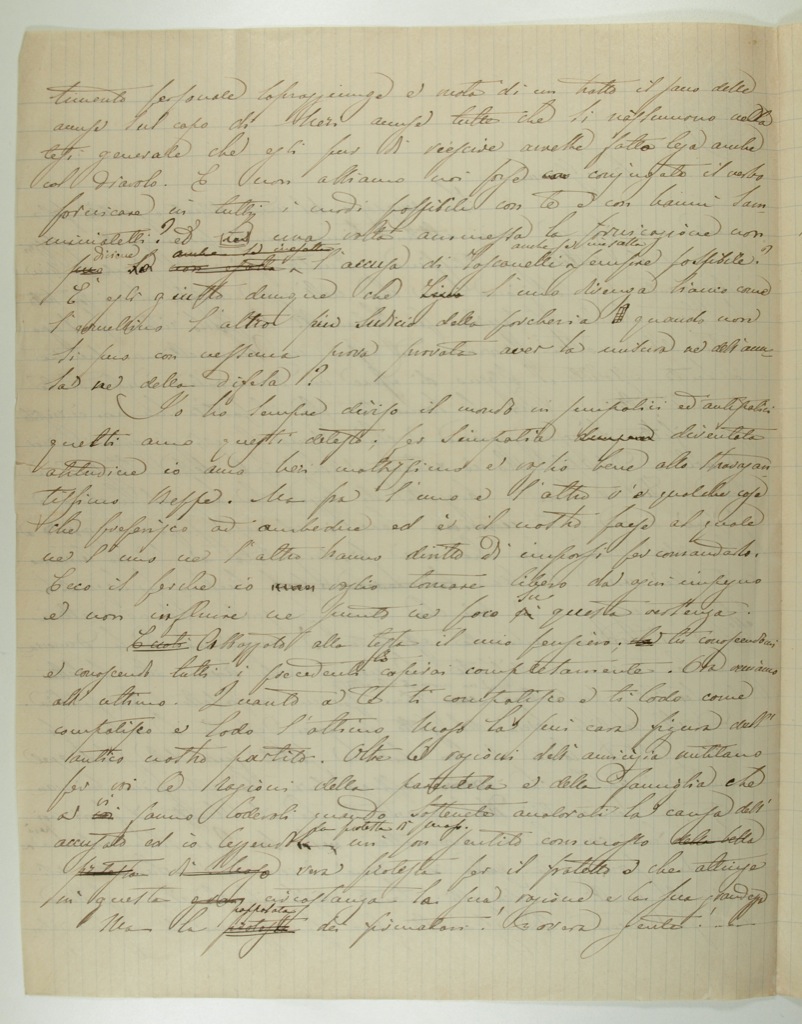 timento personale sopraggiunge e muta di un tratto il
accuse sul capo di accuse tutte che si riassumono nella
tesi generale che egli pur di riescire avrebbe fatto lega anche
col Diavolo. E non abbiamo noi forse conjugato il verbo
fornicare in tutti i modi possibile con te e con Sam-
miniatelli? ed una volta ammessa la fornicazione non
diviene anche se inesatta
l'accusa di Toscanelli anche se inesatta sempre possibile?
È egli giusto dunque che l'uno divenga bianco come
l'ermellino l'altro più sudicio della porcheria quando non
si può con nessuna prova provata aver la misura nè dell'accu-
sa nè della difesa!?
Io ho sempre diviso il mondo in simpatici ed antipatici
quelli amo questi detesto; per simpatia diventata
abitudine io amo moltissimo e voglio bene allo stravagan-
tissimo Beppe. Ma fra l'uno e l'altro v'è qualche cosa
che preferisco ad ambedue ed è il nostro paese al quale
nè l'uno nè l'altro hanno diritto di imporsi per comandarlo.
Ecco il perchè io voglio tornare libero da ogni impegno
e non influire nè punto nè poco su questa vertenza.
Abbozzato alla testa il mio pensiero, tu conoscendomi
e conoscendo tutti i precedenti lo capirai completamente. Ora veniamo
all'ultimo. Quanto a te ti compatisco e ti lodo come
compatisco e lodo l'ottimo la più cara figura dell'
antico nostro partito. Oltre le ragioni dell'amicizia militano
per voi le ragioni della parentela e della famiglia che
vi fanno lodevoli quando sostenete avvalorati la causa dell'
accusato ed io leggendo la protesta di mi son sentito commosso della bella
protesta di vera protesta per il fratello e che attinge
in questa circostanza la sua ragione e la sua grandezza
Ma la rapposata protesta dei firmatari! Povera gente! —